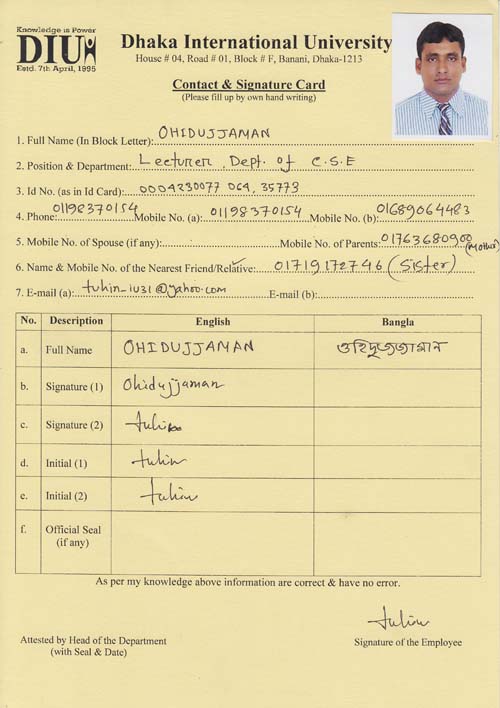 Knowledge is Power
DIU
Estd. 7th April, 1995
Dhaka International University
House # 04, Road # 01, Block # F, Banani, Dhaka-1213
Contact & Signature Card
(Please fill up by own hand writing)
1. Full Name (In Block Letter): OHIDUJJAMAN
2. Position & Department: Lecturer, Dept. of C.S.E
3. Id No. (as in Id Card): 0004230077 064, 35773
4. Phone: 01198370154 Mobile No. (a): 01198370154 Mobile No. (b): 01689064483
5. Mobile No. of Spouse (if any): Mobile No. of Parents: 01763680900 (Mother)
6. Name & Mobile No. of the Nearest Friend/Relative: 01719172746 (Sister)
7. E-mail (a): tuhin_1031@yahoo.com E-mail (b):
No. Description English Bangla
a. Full Name OHIDUJJAMAN ওহিদুজ্জামান
b. Signature (1) Ohidujjaman
c. Signature (2) tuhin
d. Initial (1) tuhin
e. Initial (2) tuhin
f. Official Seal
(if any)
As per my knowledge above information are correct & have no error.
tuhin
Attested by Head of the Department Signature of the Employee
(with Seal & Date)